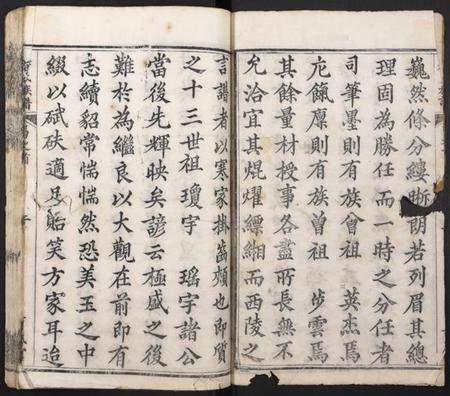 巍然條分縷晰朗若列眉其總
理固為勝任而一時之分任者
司筆墨則有族曾祖 英杰焉
庀餼廩則有族曾祖 步雲焉
其餘量材授事各盡所長無不
允洽宜其焜燿縹緗而西陵之
言譜者以寒家掛齒頰也即質
之十三世祖瓊字 瑤字諸公
當後先輝映矣諺云極盛之後
難於為繼良以大觀在前即有
志續紹常惴惴然恐美玉之中
綴以碔砆適足貽笑方家耳迨